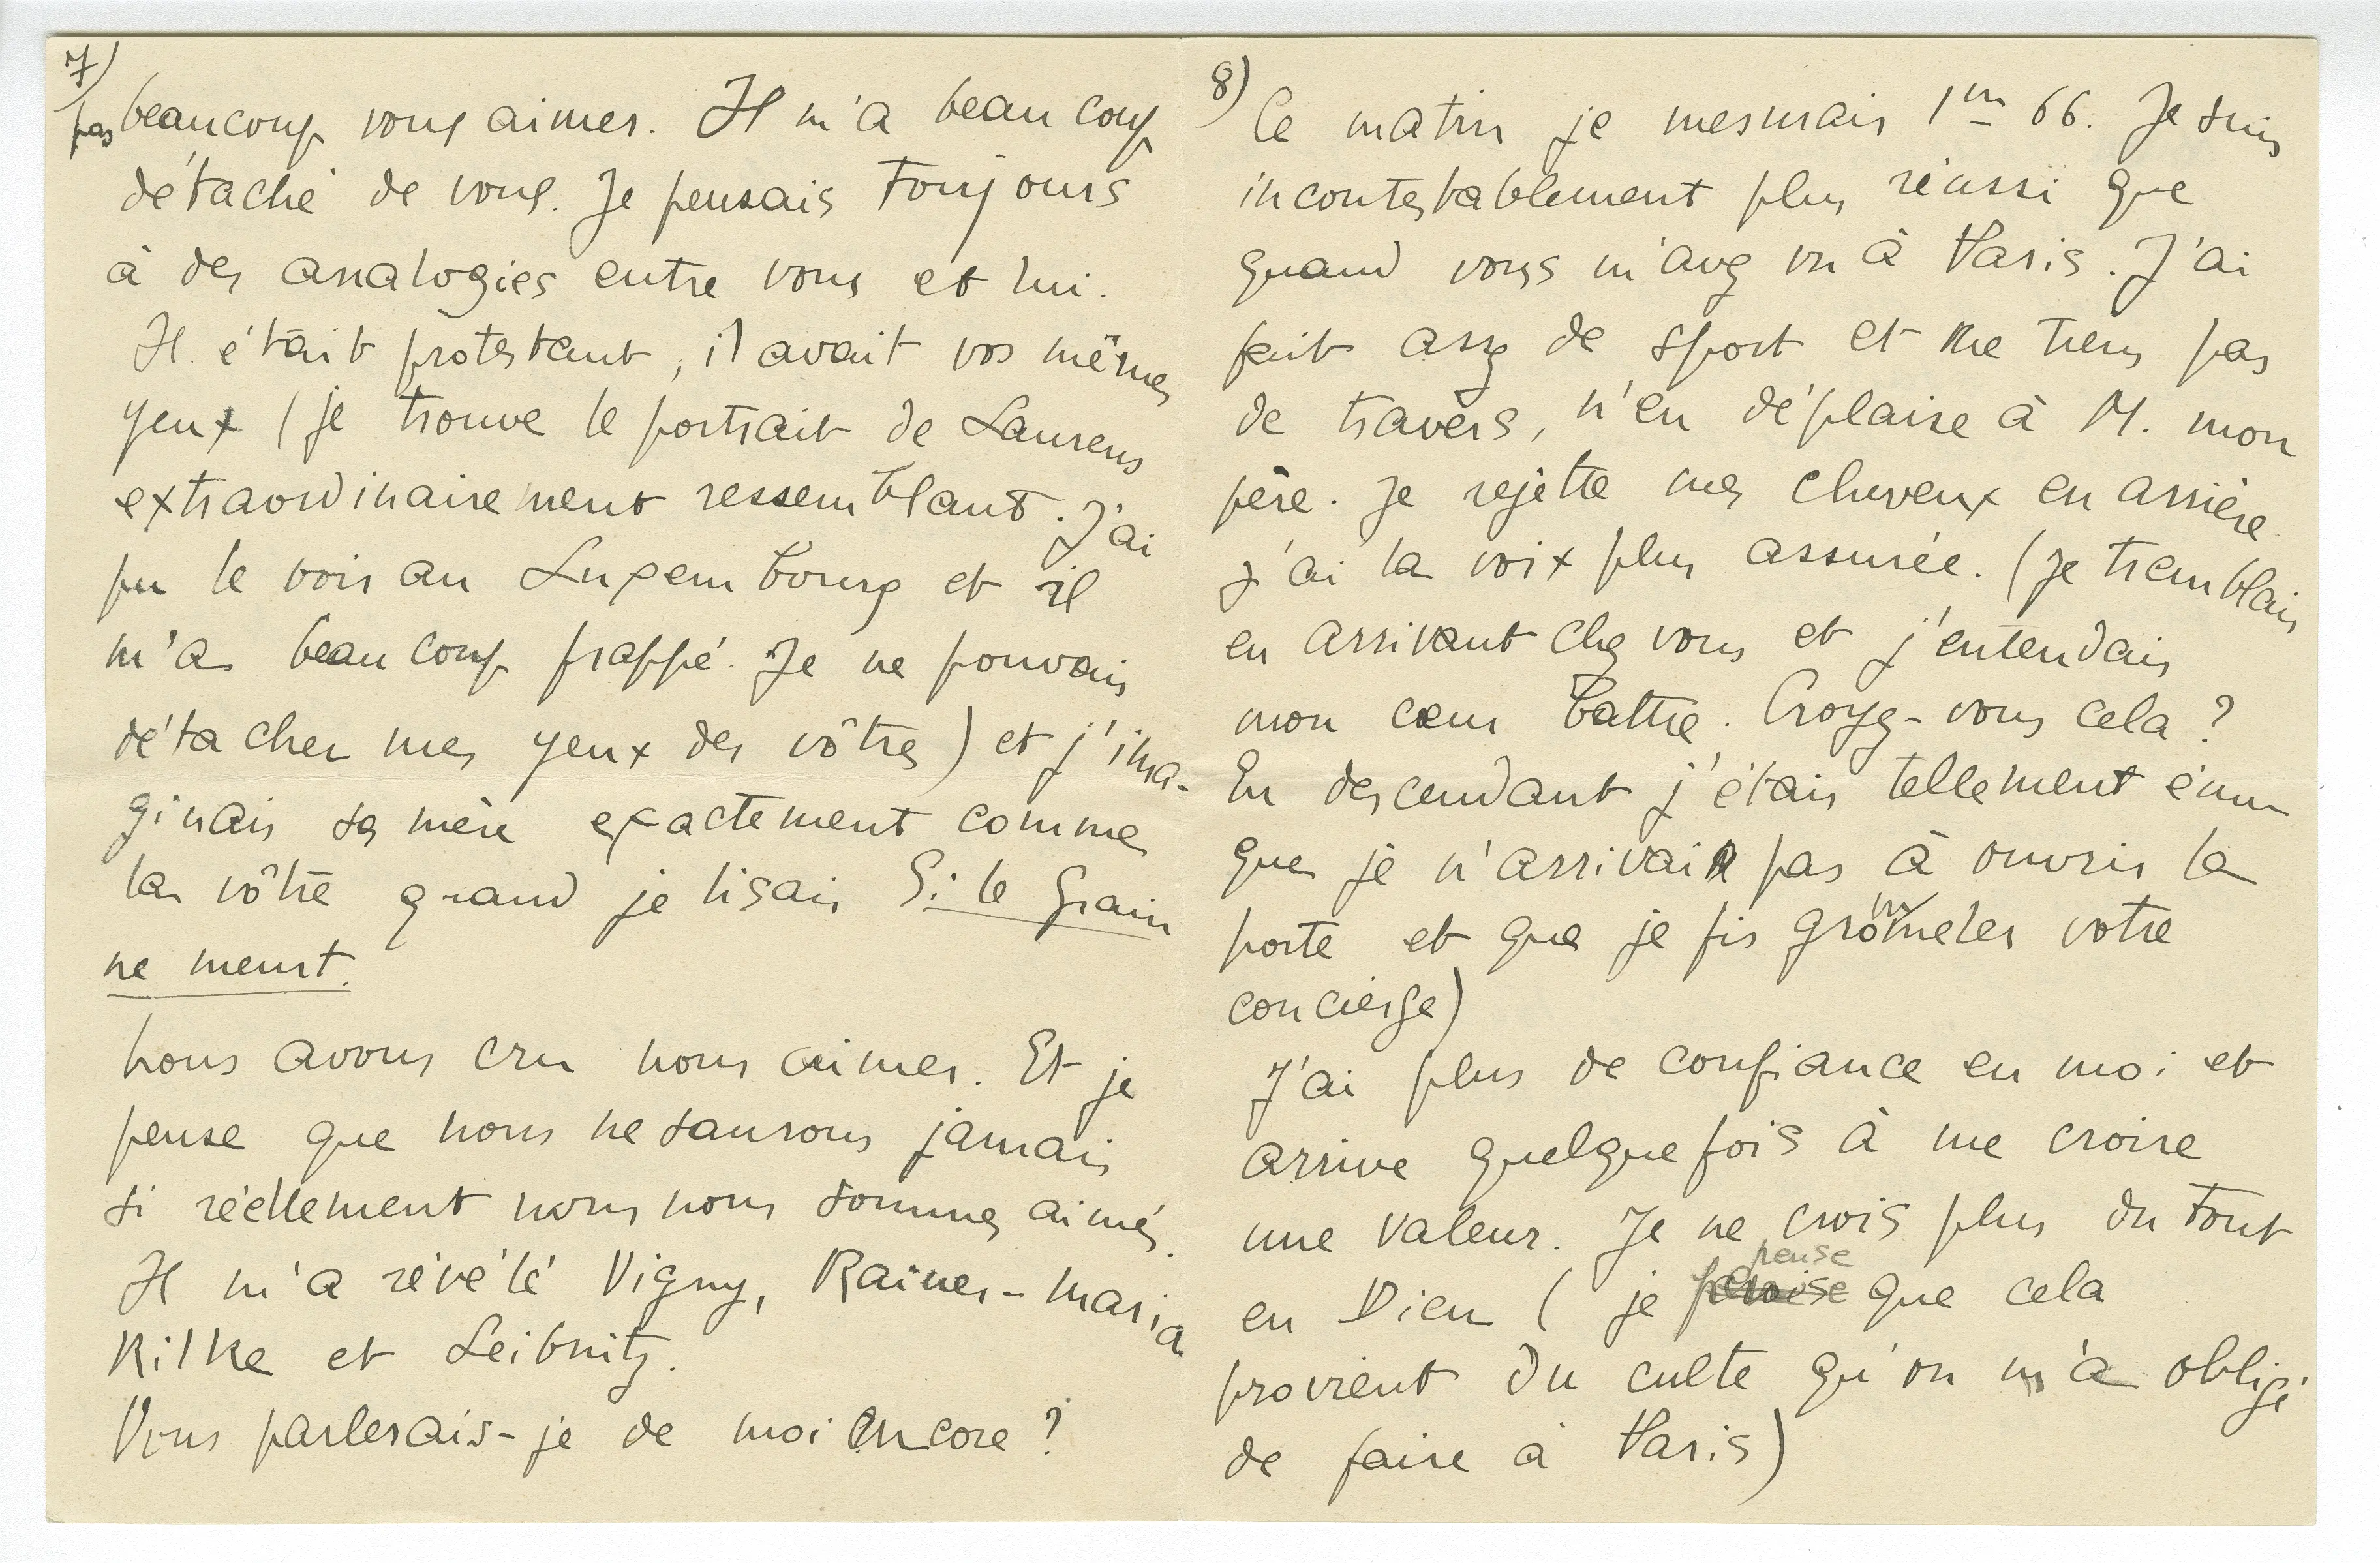 7)
pas beaucoup vous aimer. Il m'a beaucoup
détaché de vous. Je pensais toujours
à des analogies entre vous et lui.
Il était protestant, il avait vos mêmes
yeux (je trouve le portrait de Laurens
extraordinairement ressemblant. J'ai
pu le voir au Luxembourg et il
m'a beaucoup frappé. Je ne pouvais
détacher mes yeux des vôtres) et j'ima-
ginais sa mère exactement comme
la vôtre quand je lisais Si le Grain
ne meurt.
Nous avons cru nous aimer. Et je
pense que nous ne saurons jamais
si réellement nous nous sommes aimés.
Il m'a révélé Vigny, Rainer-Maria
Rilke et Leibnitz.
Vous parlerais-je de moi encore ?
8)
Ce matin je mesurais 1m 66. Je suis
incontestablement plus réussi que
quand vous m'avez vu à Paris. J'ai
fait assez de sport et ne me tiens pas
de travers, n'en déplaise à M. mon
père. Je rejette mes cheveux en arrière.
J'ai la voix plus assurée. (Je tremblais
en arrivant chez vous et j'entendais
mon cœur battre. Croyez-vous cela ?
En descendant j'étais tellement ému
que je n'arrivais pas à ouvrir la
porte et que je fis grommeler votre
concierge)
J'ai plus de confiance en moi et
arrive quelquefois à me croire
une valeur. Je ne crois plus du tout
en Dieu (je pense que cela
provient du culte qu'on m'a obligé
de faire à Paris)